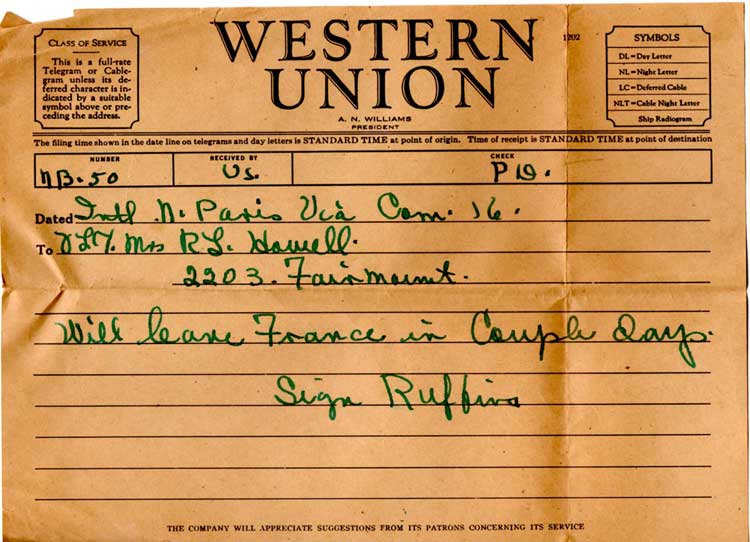 CLASS OF SERVICE
This is a full-rate
Telegram or Cable-
gram unless its de-
ferred character is in-
dicated by a suitable
symbol above or pre-
ceding the address.
WESTERN
UNION
A. N. WILLIAMS
PRESIDENT
1202
SYMBOLS
DL = Day Letter
NL = Night Letter
LC = Deferred Cable
NLT = Cable Night Letter
Ship Radiogram
The filing time shown in the date line on telegrams and day letters is STANDARD TIME at point of origin. Time of receipt is STANDARD TIME at point of destination
NUMBER
NB-50
RECEIVED BY
Us.
CHECK
P D.
Dated Intl N. Paris Via Com. 16.
To NLT. Mrs R L. Howell.
2203. Fairmount.
Will leave France in Couple days.
Sign Ruffins
THE COMPANY WILL APPRECIATE SUGGESTIONS FROM ITS PATRONS CONCERNING ITS SERVICE